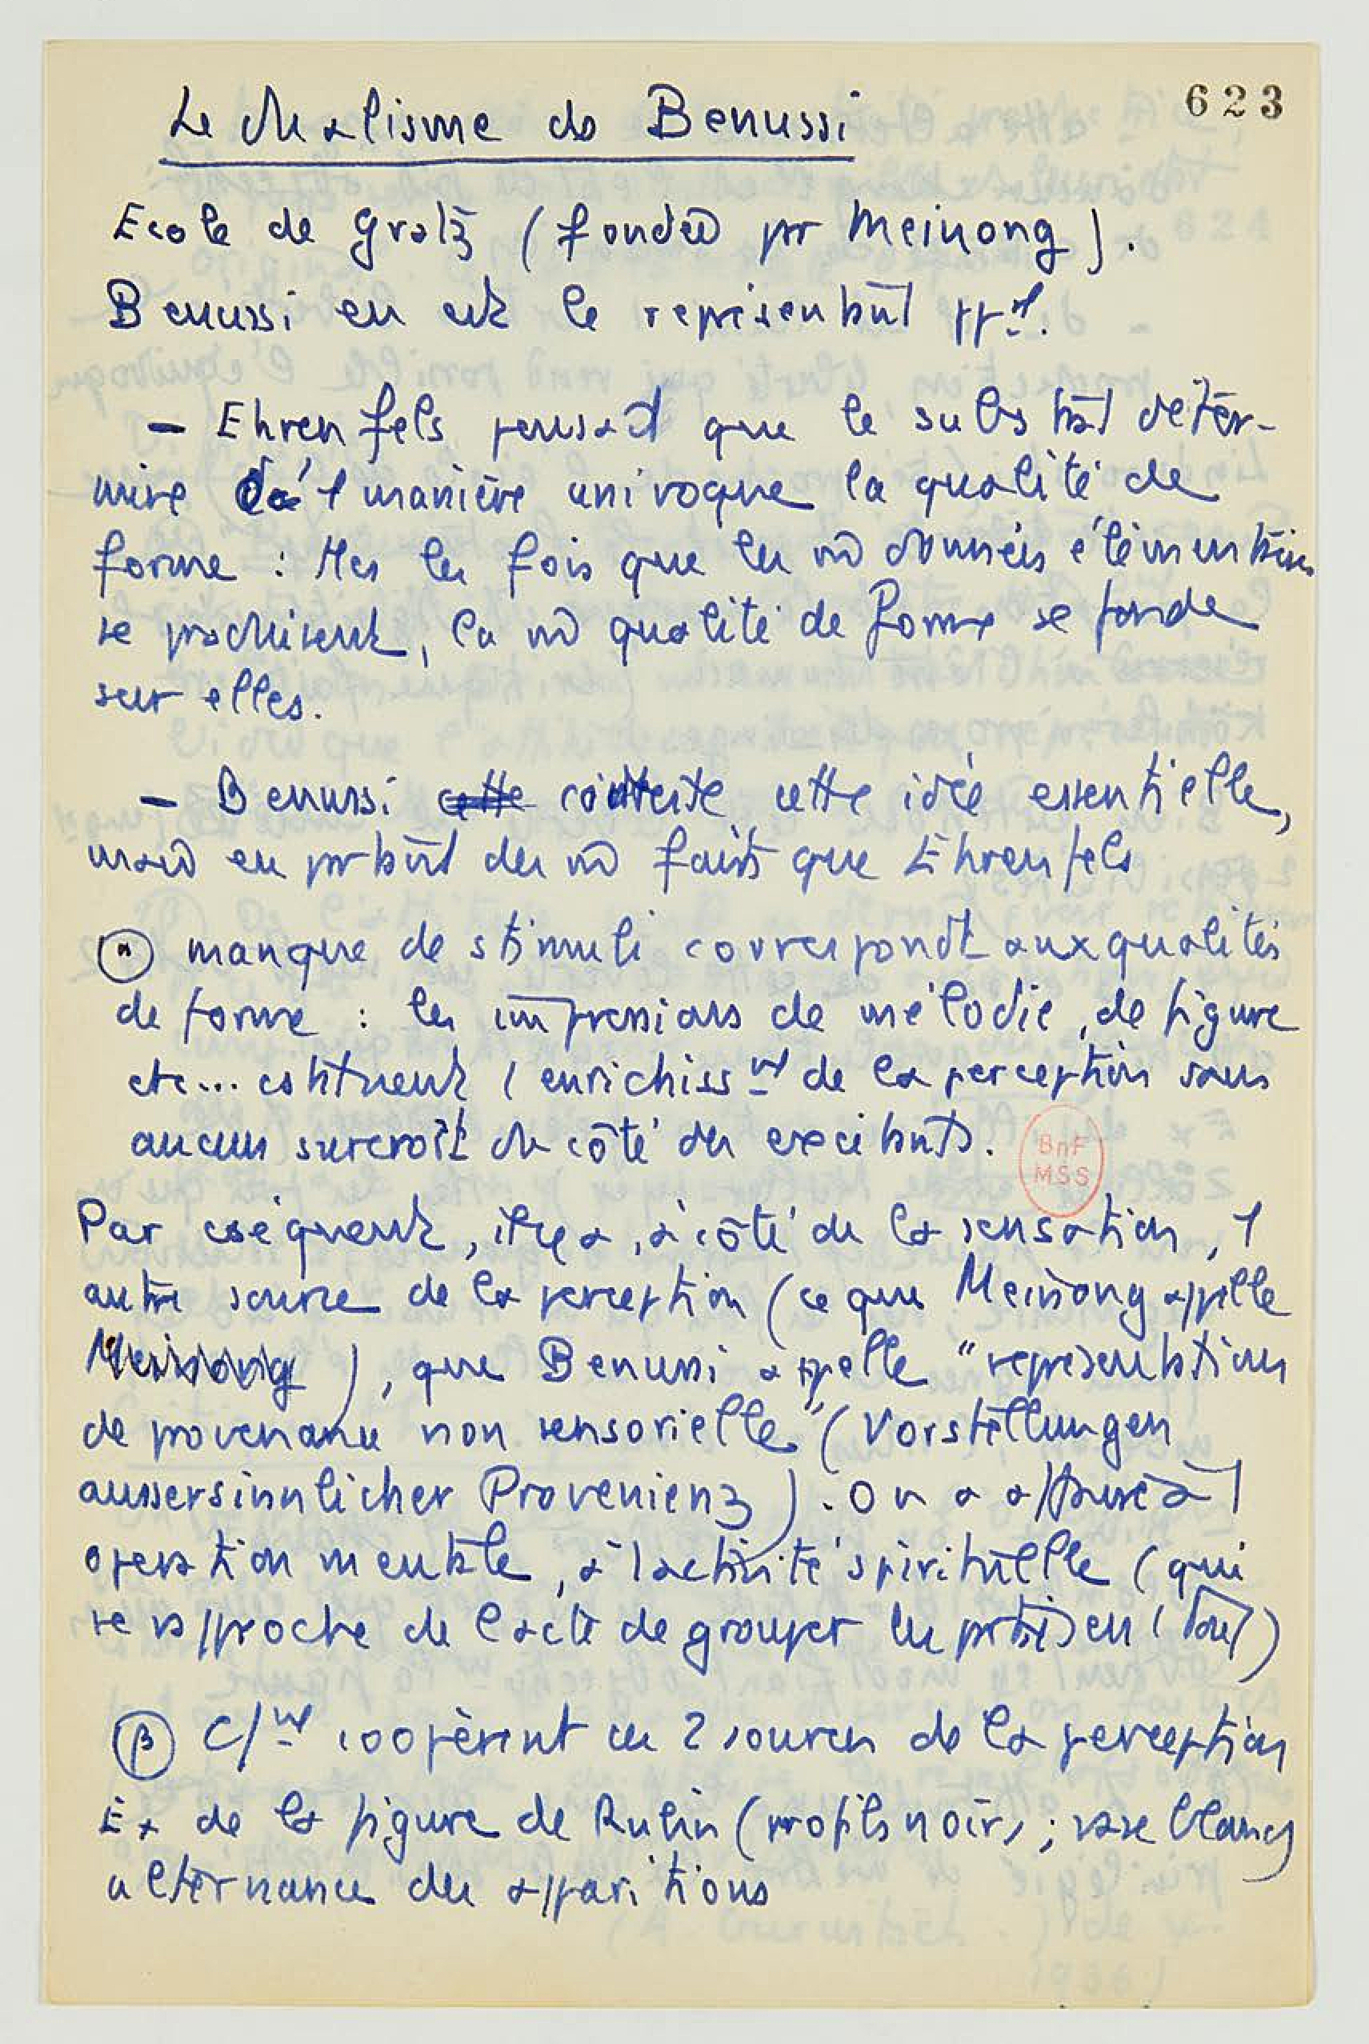 623
Le dualisme de Benussi
Ecole de Gratz (fondée pr Meinong).
Benussi en est le représentant ppal.
– Ehrenfels pensait que le substrat déter-
mine d'1 manière univoque la qualité de
forme : ttes les fois que les m̂ données élémentaires
se produisent, la m̂ qualité de forme se fonde
sur elles.
– Benussi cette conteste cette idée essentielle,
mais en partant des m̂ faits que Ehrenfels
α manque de stimuli correspondt aux qualités
de forme : les impressions de mélodie, de figure
etc... cstituent 1 enrichisst de la perception sans
aucun surcroît du côté des excitants.
Par cséquent, il y a, à côté de la sensation, 1
autre source de la perception (ce que Meinong appelle
Meinong), que Benussi appelle "représentations
de provenance non sensorielle" (Vorstellungen
aussersinnlicher Provenienz). On a affaire à 1
opération mentale, à 1 activité spirituelle (qui
se rapproche de l'acte de grouper les parties en 1 tout)
β C/mt coopèrent ces 2 sources de la perception
Ex de la figure de Rubin (profils noirs ; vase blanc)
alternance des apparitions
BnF
MSS